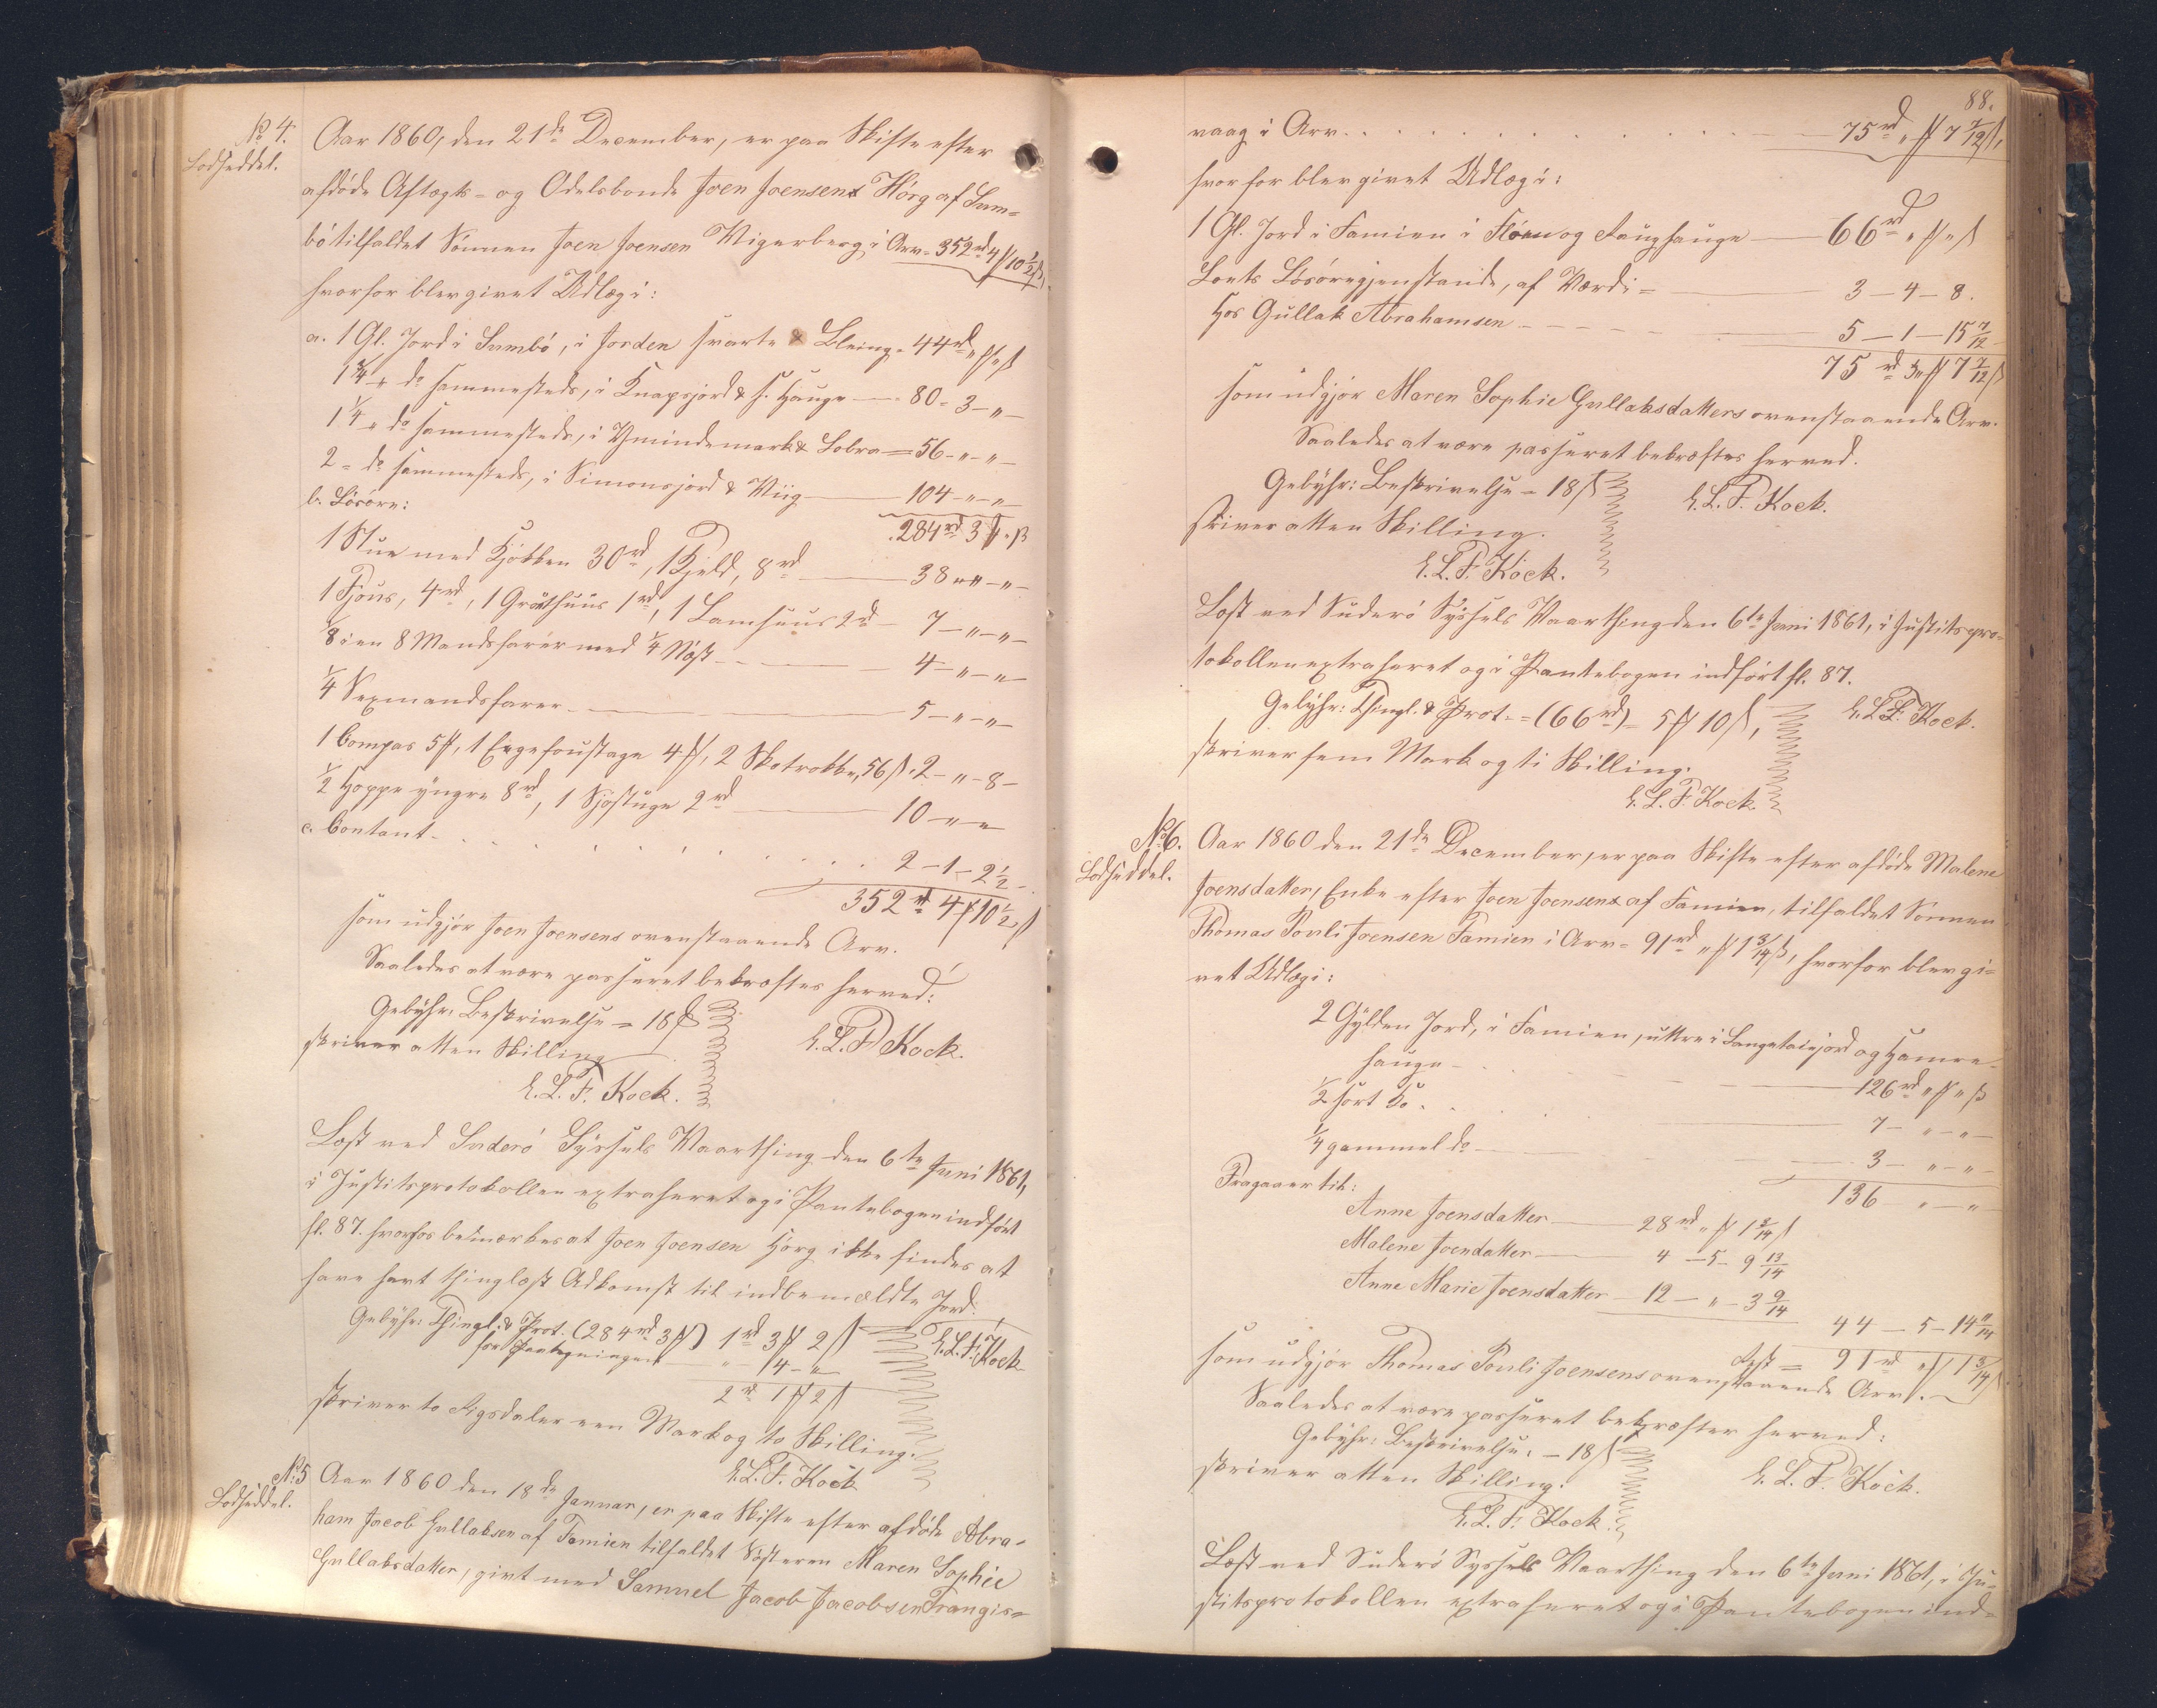 No 4.
Lodseddel.
Aar 1860, den 21de December, er paa Skifte efter
afdöde Aftægts- og Odelsbonde Joen Joensens Hörg af Sum-
bö tilfaldet Sönnen Joen Joensen Vigerberg i Arv = 352rd 4 ₥ 10 1/2 ß,
hvorfor blev givet Udlæg i:
a. 1 Gl. Jord i Sumbö, i Jorden svarte & Bleing = 44rd " ₥ " ß
1 3/4 " do sammesteds, i Knapsjord & h. Hauge — 80 - 3 - " -
1 1/4 " do sammesteds, i Ymindemark & Lobra = 56 - " - " -
2 = do sammesteds, i Simonsjord & Viig — 104 - " - "
284rd 3 ₥ " ß
b. Lösöre:
1 Stue med Kjökken 30rd, 1 Kjeld, 8rd — 38 - " - " -
1 Fjøus, 4rd, 1 Gröthuus 1rd, 1 Lamhuus 2rd — 7 - " - " -
1/8 i en 8 Mandsfarer med 1/4 Nöst — 4 - " - " -
1/4 Sexmandsfarer — 5 - " - " -
1 Compas 5 ₥, 1 Exgefoustage 4 ₥, 2 Skotrokke, 56 ß. 2 - " - 8 -
1/2 Hoppe yngre 8rd, 1 Sjostuge 2rd — 10 - " - "
c. Contant . . . . . . 2 - 1 - 2 1/2 -
352rd 4 ₥ 10 1/2 ß
som udgjör Joen Joensens ovenstaaende Arv.
Saaledes at være passeret bekræftes herved:
Gebyhr: Beskrivelse = 18 ß
skriver atten Skilling
E.L.F. Kock.
E.L.F. Kock.
Læst ved Suderö Syssels Vaarthing den 6te Juni 1861,
i Justitsprotokollen extraheret og i Pantebogen indfört
fl. 87. hvorhos bemærkes at Joen Joensen Hörg ikke findes at
have havt thinglæst Adkomst til indbemældte Jord.
Gebyhr: Thingl. & Prot. (284rd 3 ₥) 1rd 3 ₥ 2 ß
for Paategningen " - 4 - "
2rd 1 ₥ 2 ß
E.L.F. Kock
skriver to Rigsdaler een Mark og to Skilling.
E.L.F. Kock
No 5
Lodseddel.
Aar 1860 den 18de Januar, er paa Skifte efter afdöde Abra-
ham Jacob Gullaksen af Famien tilfaldet Sösteren Maren Sophie
Gullaksdatter, givt med Samuel Jacob Jacobsen Trangis-
88.
vaag i Arv . . . . . . — 75rd " ₥ 7 7/12 ß,
hvorfor blev givet Udlæg i:
1 Gl. Jord i Famien i Flöen og Laughauge — 66rd " ₥ " ß
Lorts Lösöregjenstande, af Værdi = — 3 - 4 - 8.
Hos Gullak Abrahamsen — 5 - 1 - 15 7/12
75rd " ₥ 7 7/12 ß
som udgjör Maren Sophie Gullaksdatters ovenstaaende Arv.
Saaledes at være passeret bekræftes herved.
Gebyhr: Beskrivelse = 18 ß
skriver atten Skilling.
E.L.F. Kock.
E.L.F. Kock.
Læst ved Suderö Syssels Vaarthing den 6te Juni 1861, i Justitspro-
tokollen extraheret og i Pantebogen indfört fl. 87.
Gebyhr: Thingl. & Prot. = (66rd) = 5 ₥ 10 ß,
E.L.F. Kock.
skriver fem Mark og ti Skilling.
E.L.F. Kock
No 6.
Lodseddel.
Aar 1860 den 21de December, er paa Skifte efter afdöde Malene
Joensdatter, Enke efter Joen Joensens af Famien, tilfaldet Sönnen
Thomas Pouli Joensen Famien i Arv = 91rd " ₥ 1 3/14 ß, hvorfor blev gi-
vet Udlæg i:
2 Gylden Jord, i Famien, uttre i Langetaiejord og Hamre-
hauge — 126rd " ₥ " ß
1/2 sort Ko . . — 7 - " - " -
1/4 gammel do — 3 - " - " -
136 " - "
Fragaaer til:
Anne Joensdatter — 28rd " ₥ 1 3/14 ß
Malene Joendatter — 4 - 5 - 9 13/14
Anne Marie Joensdatter — 12 - " - 3 9/14
44 - 5 - 14 11/14
Rest = 91rd " ₥ 1 3/14 ß
som udgjör Thomas Pouli Joensens ovenstaaende Arv.
Saaledes at være passeret bekræftes herved:
Gebyhr: Beskrivelse: - 18 ß
skriver atten Skilling.
E.L.F. Kock.
E.L.F. Kock.
Læst ved Suderö Syssels Vaarthing den 6te Juni 1861, i Ju-
stitsprotokollen extraheret og i Pantebogen ind-